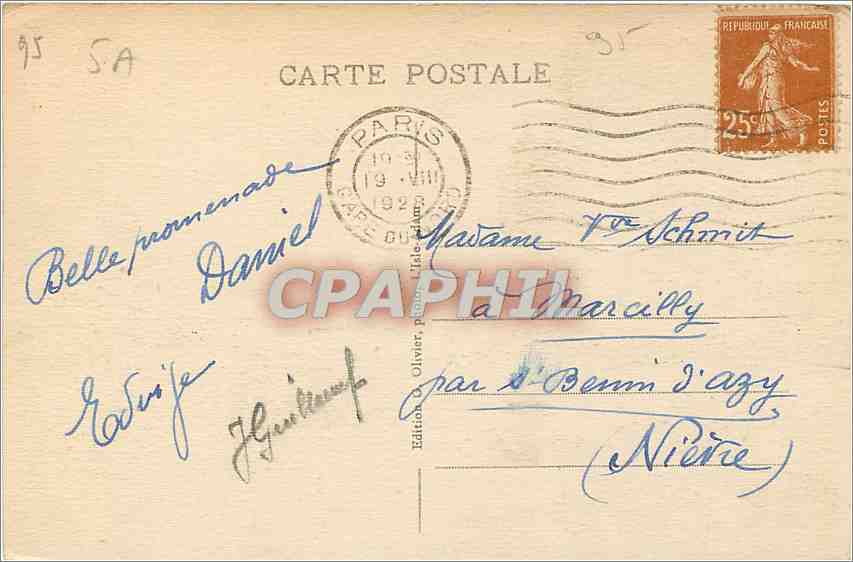 95
5A
95
CARTE POSTALE
REPUBLIQUE FRANÇAISE
25c
POSTES
PARIS
19 VIII
1928
GARE DU NORD
Belle promenade
Daniel
Edvige
Madame Vve Schmit
à Marcilly
par St Benin d'azy
(Nièvre)
CPAPHIL
Edition O. Olivier, photo, L'Isle-Adam